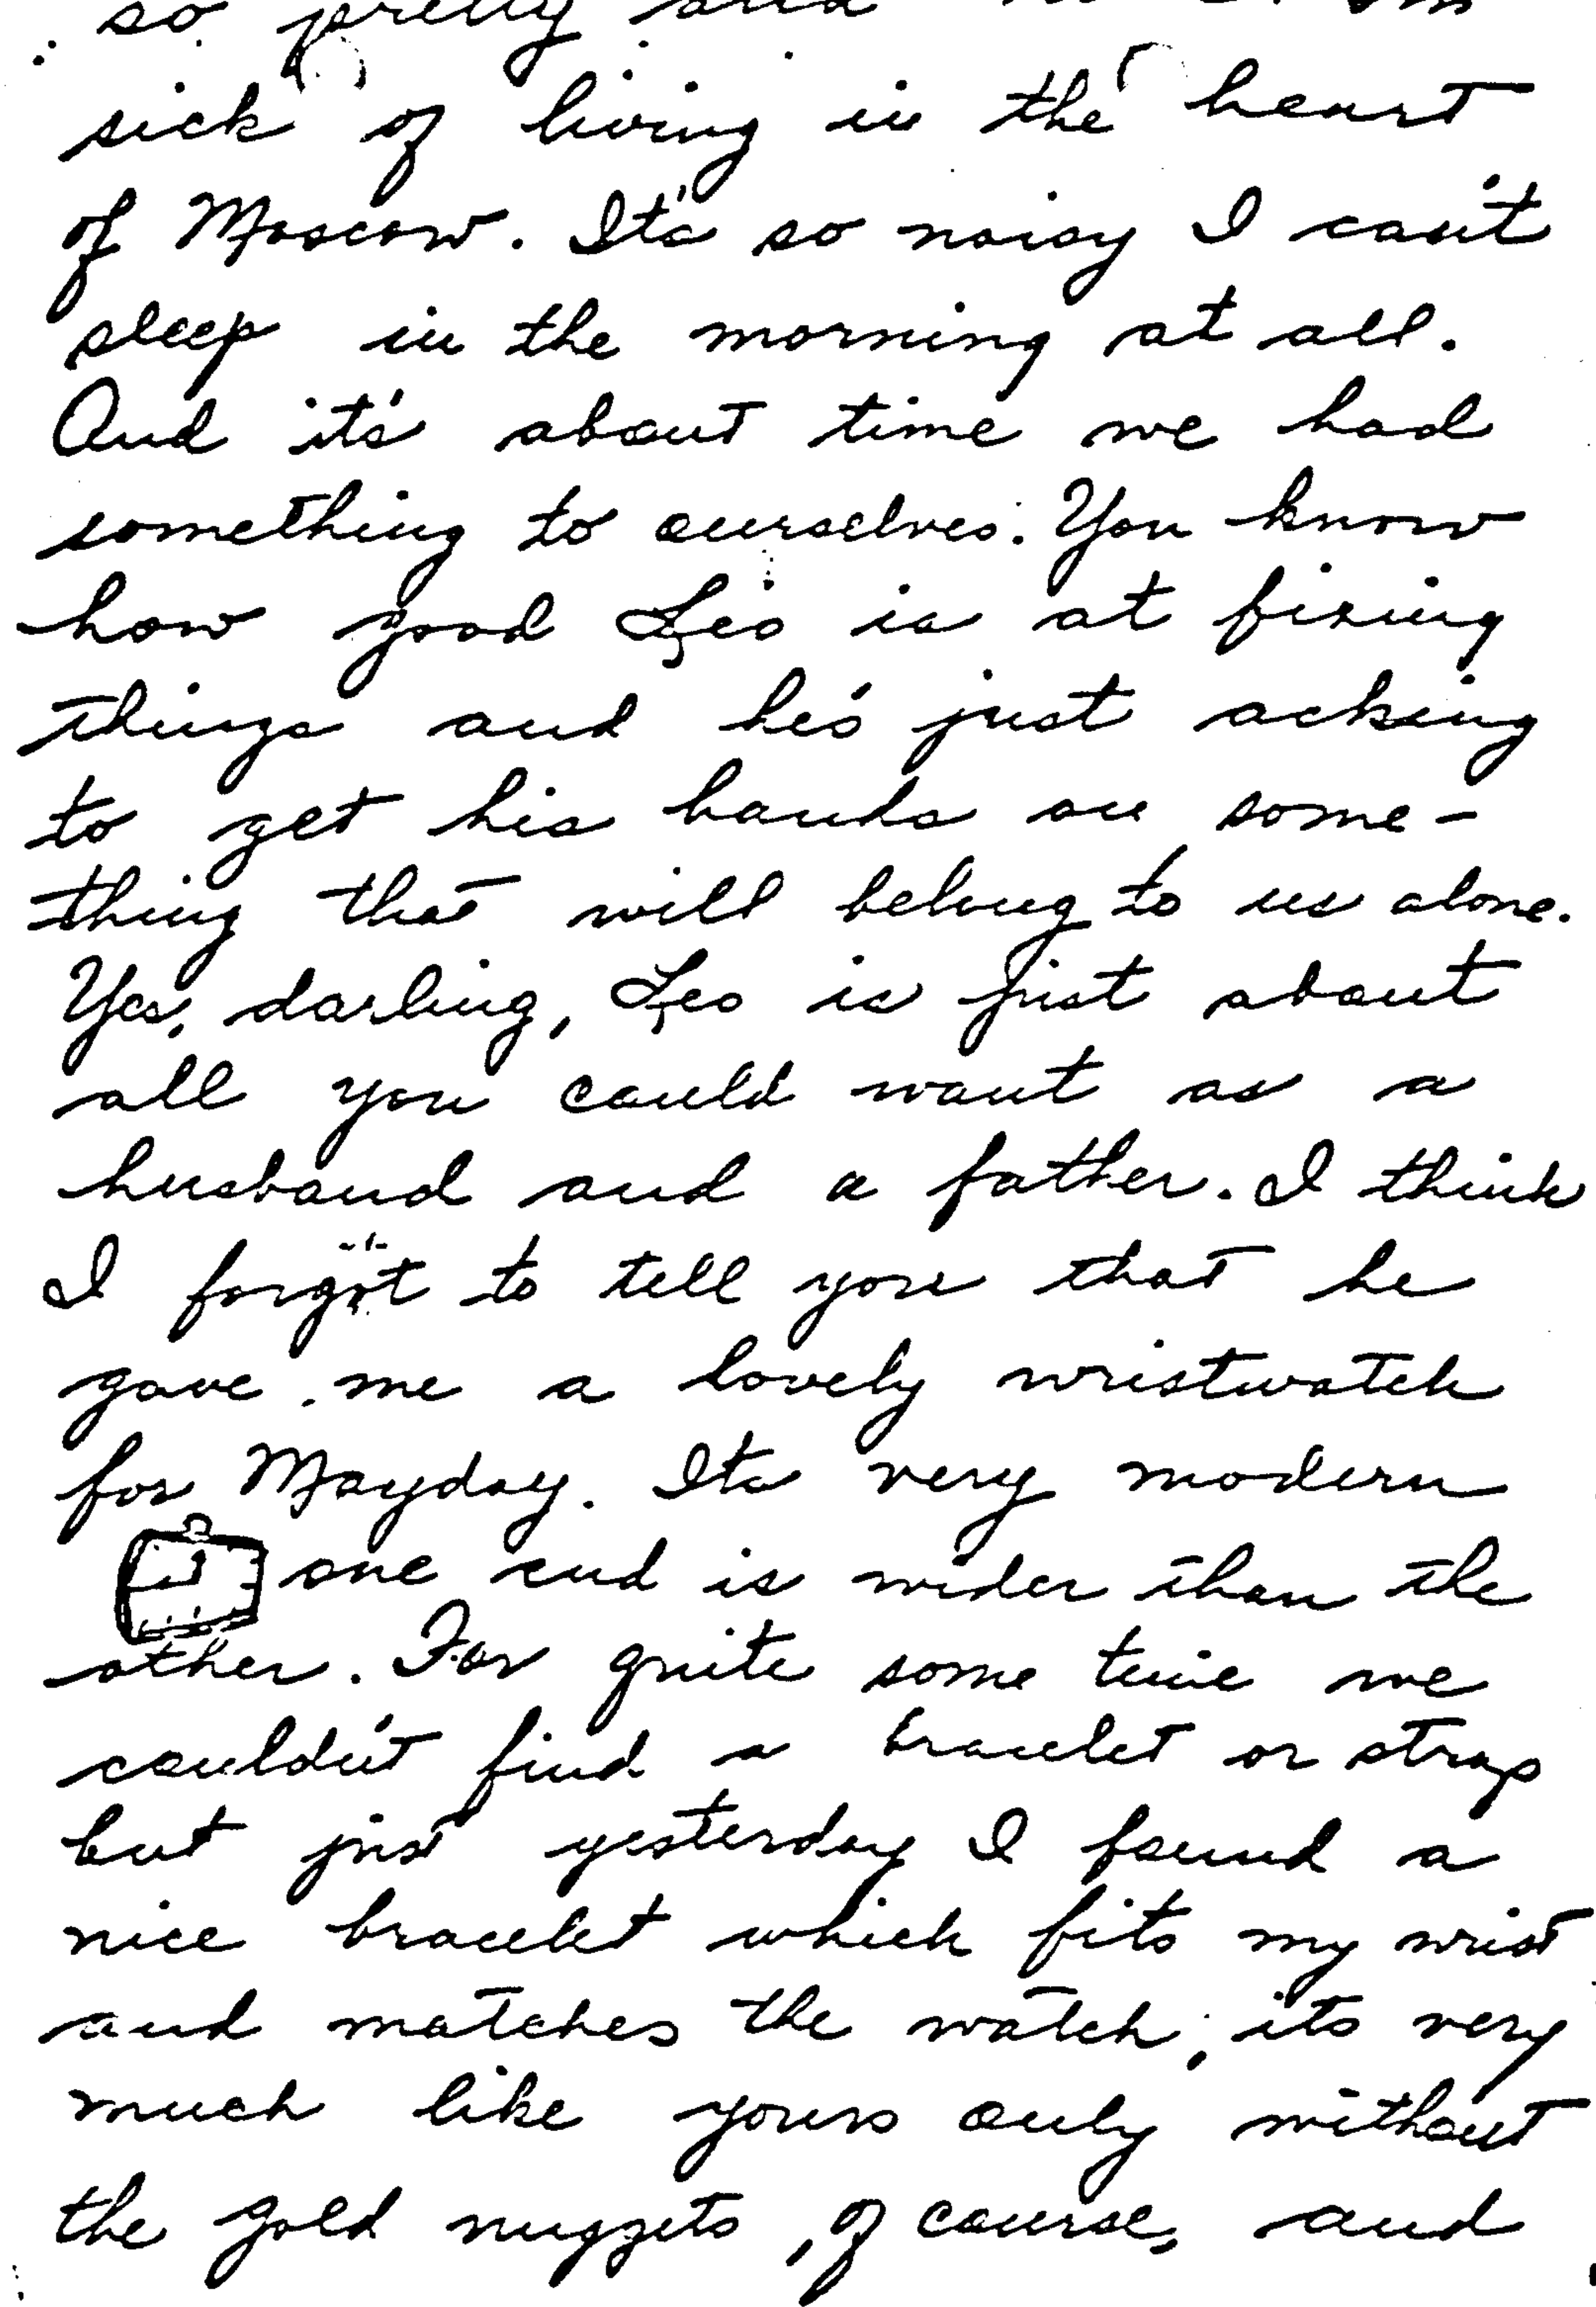 so pretty and
sick of living in the heart
of Moscow. It's so noisy I can't
sleep in the morning at all.
And it's about time we had
something to ourselves. You know
how good Leo is at fixing
things and he's just aching
to get his hands on some-
thing that will belong to us alone.
Yes, darling, Leo is just about
all you could want as a
husband and a father. I think
I forgot to tell you that he
gave me a lovely wristwatch
for Mayday. Its very modern
one end is wider than the
other. For quite some time we
couldn't find a bracelet or strap
but just yesterday I found a
nice bracelet which fits my wrist
and matches the watch, its very
much like yours only without
the gold nuggets, of course, and